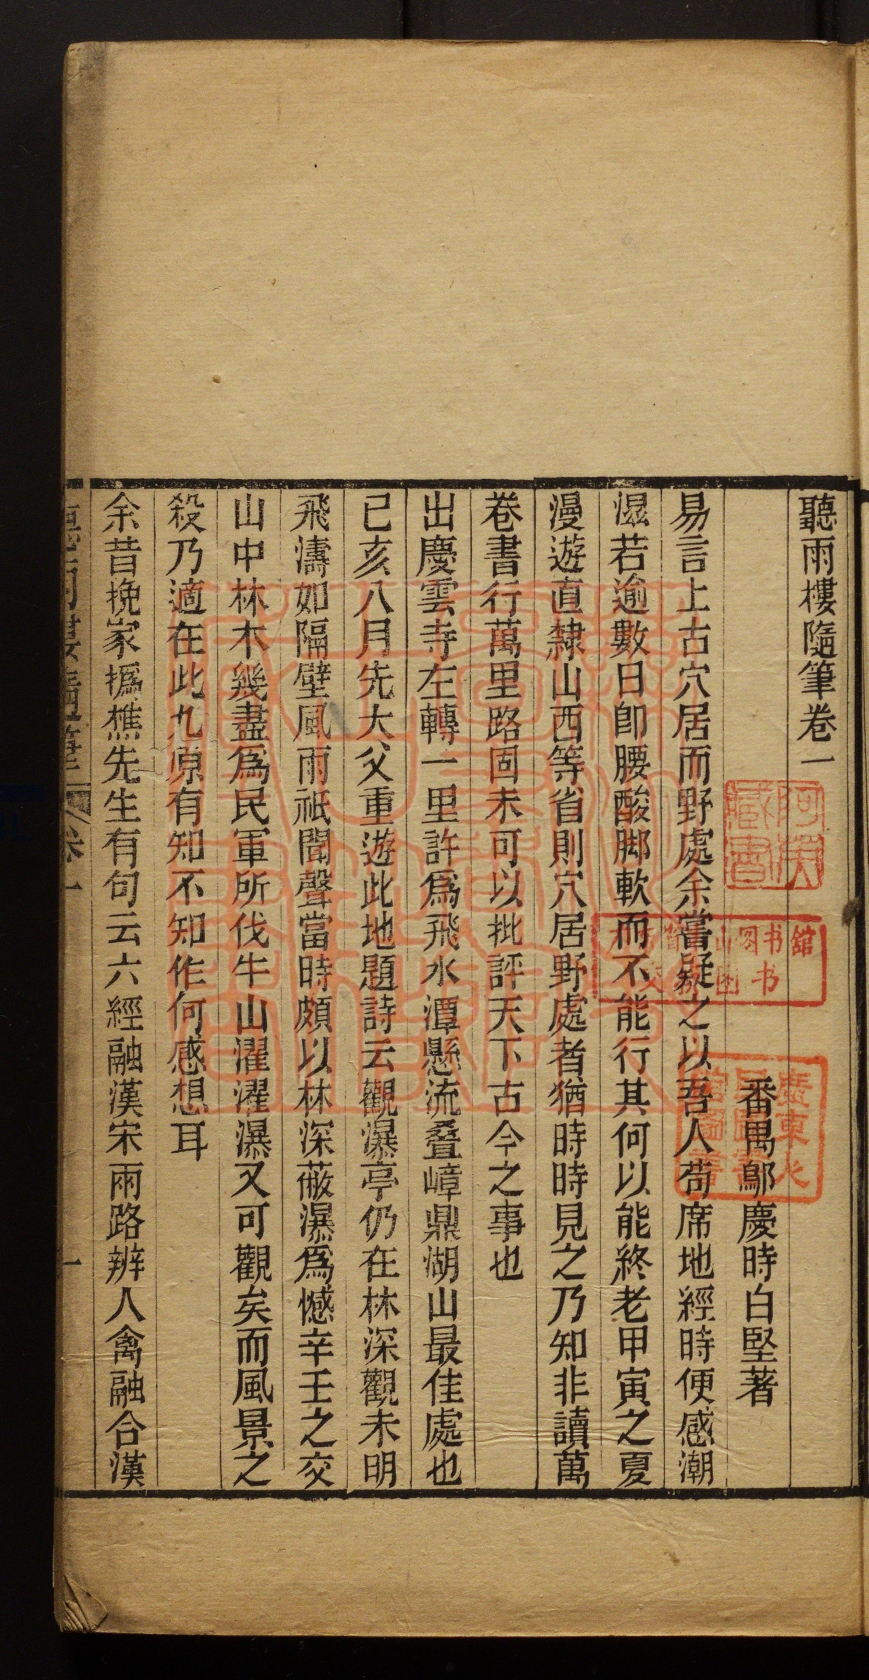 聽雨樓隨筆卷一
番禺鄔慶時白堅著
易言上古穴居而野處余嘗疑之以吾人苟席地經時便感潮
濕若逾數日卽腰酸脚軟而不能行其何以能終老甲寅之夏
漫遊直隸山西等省則穴居野處者猶時時見之乃知非讀萬
卷書行萬里路固未可以批評天下古今之事也
出慶雲寺左轉一里許爲飛水潭懸流疊嶂鼎湖山最佳處也
已亥八月先大父重遊此地題詩云觀瀑亭仍在林深觀未明
飛濤如隔壁風雨祇聞聲當時頗以林深蔽瀑爲憾辛壬之交
山中林木幾盡爲民軍所伐牛山濯濯瀑又可觀矣而風景之
殺乃適在此九原有知不知作何感想耳
余昔挽家撝樵先生有句云六經融漢宋兩路辨人禽融合漢
聽雨樓隨筆 卷一 一
藏書
山图书館
廣東